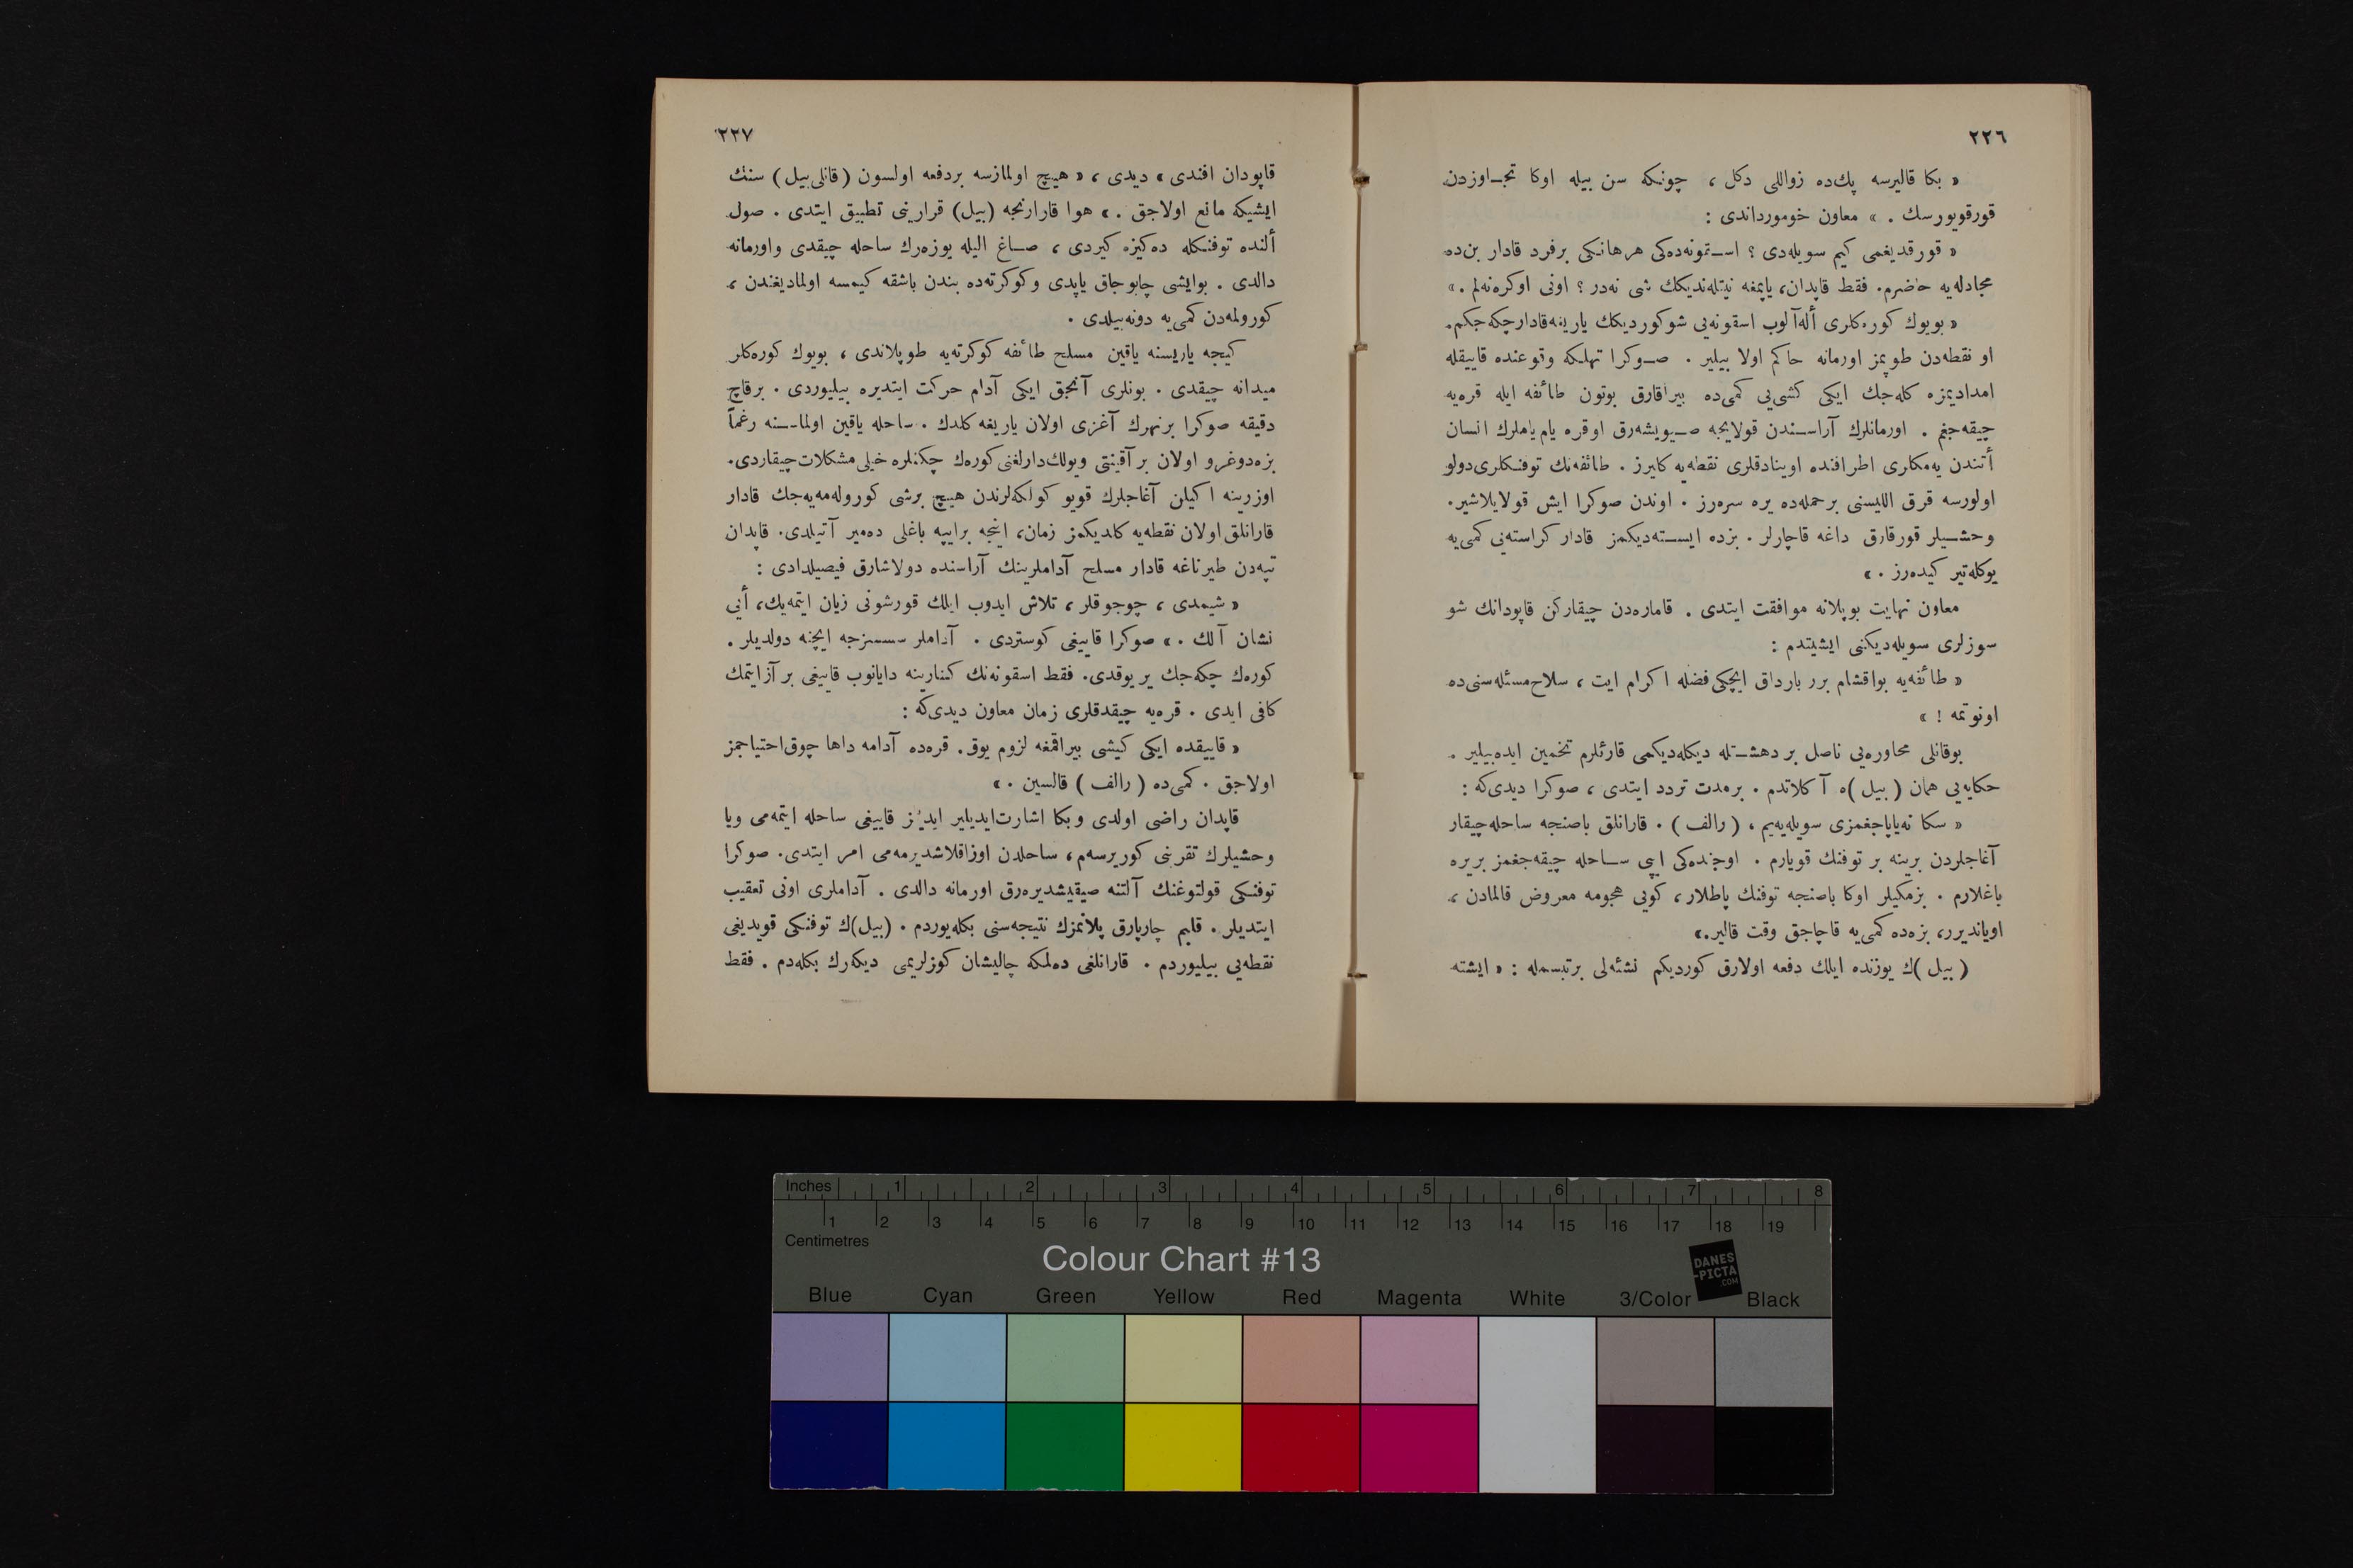 ٢٢٦
« بكا قاليرسه پك‌ده زواللى دكل ، چونكه سن بيله اوكا تجـاوزدن
قورقويورسك . » معاون خوموردا‌ندى :
« قورقديغمى كيم سويله‌دى ؟ اسـتمونه‌ده‌كى هرهانكى برفرد قادار بن‌ده
مجادله‌يه حاضرم. فقط قاپدان، ياپمغه نيتله‌نديكك شى نه‌در ؟ اونى اوكره‌نه‌لم . »
« بويوك كوره‌كلرى أله‌آلوب اسقونه‌يى شوكورديكك ياريغه‌قادارچكه‌جكم.
او نقطه‌دن طوپمز اورمانه حاكم اولا بيلير . صـوكرا تهلكه وقوعنده قاييقله
امداديمزه كله‌جك ايكى كشى‌يى كمى‌ده بيراقارق بوتون طائفه ايله قره‌يه
چيقه‌جغم . اورمانلرك آراسـندن قولايجه صـيويشه‌رق اوقره يام ياملرك انسان
أتندن يه‌مكلرى اطرافنده اوينادقلرى نقطه‌يه كليرز . طائفه‌نك توفنكلرى‌دولو
اولورسه قرق الليسنى برحمله‌ده يره سره‌رز . اوندن صوكرا ايش قولايلاشير.
وحشـيلر قورقارق داغه قاچارلر . بزده ايسـته‌ديكمز قادار كراسته‌يى كمى‌يه
يوكله‌تير كيده‌رز . »
معاون نهايت بوپلانه موافقت ايتدى . قاماره‌دن چيقاركن قاپودانك شو
سوزلرى سويله‌ديكنى ايشيتدم :
« طائفه‌يه بواقشام برر بارداق ايچكى‌فضله اكرام ايت ، سلاح‌مسئله‌سنى‌ده
اونوتمه ! »
بوقانلى محاوره‌يى ناصل بر دهشـتله ديكله‌ديكمى قارئلرم تخمين ايده‌بيلير .
حكايه‌يى همان ( بيل )ه آكلاتدم . برمدت تردد ايتدى ، صوكرا ديدى‌كه :
« سكا نه‌ياپاجغمزى سويله‌يه‌يم ، ( رالف ) . قارانلق باصنجه ساحله‌چيقار
آغاجلردن برينه بر توفنك قويارم . اوجنده‌كى ايپى سـاحله چيقه‌جغمز بريره
باغلارم . بزمكيلر اوكا باصنجه توفنك پاطلار، كويى هجومه معروض قالمادن ،
اوياندير‌ر، بزه‌ده كمى‌يه قاچاجق وقت قالير.»
( بيل )ك يوزنده ايلك دفعه اولارق كورديكم نشئه‌لى برتبسمله : « ايشته
٢٢٧
قاپودان افندى » ديدى ، « هيچ اولمازسه بردفعه اولسون ( قانلى‌بيل ) سنك
ايشيكه مانع اولاجق . » هوا قارارنجه (بيل) قرارينى تطبيق ايتدى . صول
ألنده توفنكله ده‌كيزه كيردى ، صـاغ اليله يوزه‌رك ساحله چيقدى واورمانه
دالدى . بوايشى چابوجاق ياپدى وكوكرته‌ده بندن باشقه كيمسه اولماديغندن ،
كورولمه‌دن كمى‌يه دونه‌بيلدى .
كيجه ياريسنه ياقين مسلح طائفه كوكرته‌يه طوپلاندى ، بويوك كوره‌كلر
ميدانه چيقدى . بونلرى آنجق ايكى آدام حركت ايتديره بيليوردى . برقاچ
دقيقه صوكرا برنهرك آغزى اولان ياريغه كلدك . ساحله ياقين اولمـاسـنه رغماً
بزه‌دوغرو اولان بر آقينتى ويولك‌دارلغنى كوره‌ك چكنلره خيلى مشكلات‌چيقاردى.
اوزرينه اكيلن آغاجلرك قويو كولكه‌لرندن هيچ برشى كورو‌له‌مه‌يه‌جك قادار
قارانلق‌اولان نقطه‌يه كلديكمز زمان، اينجه برايپه باغلى ده‌مير آتيلدى. قاپدان
تپه‌دن طيرناغه قادار مسلح آداملرينك آراسنده دولاشارق فيصيلدادى :
« شيمدى ، چوجوقلر ، تلاش ايدوب ايلك قورشونى زيان ايتمه‌يك، أيى
نشان آلك . » صوكرا قاييغى كوستردى . آداملر سسسزجه ايچنه دولديلر .
كوره‌ك چكه‌جك ير يوقدى. فقط اسقونه‌نك كنارينه دايانوب قاييغى بر آز‌ايتمك
كافى ايدى . قره‌يه چيقدقلرى زمان معاون ديدى‌كه :
« قاييقده ايكى كيشى بيراقمغه لزوم يوق. قره‌ده آدامه داها چوق‌احتياجمز
اولاجق . كمى‌ده ( رالف ) قالسين . »
قاپدان راضى اولدى وبكا اشارت‌ايديلير ايديلمز قاييغى ساحله ايتمه‌مى ويا
وحشيلرك تقربنى كوريرسه‌م، ساحلدن اوزاقلاشديرمه‌مى امر ايتدى. صوكرا
توفنكى قولتوغنك آلتنه صيقيشديره‌رق اورمانه دالدى . آداملرى اونى تعقيب
ايتديلر . قلبم چارپارق پلانمزك نتيجه‌سنى بكله‌يوردم . (بيل)ك توفنكى قويديغى
نقطه‌يى بيليوردم . قارانلغى ده‌لمكه چاليشان كوزلريمى ديكه‌رك بكله‌دم . فقط
Inches 1 2 3 4 5 6 7 8
1 2 3 4 5 6 7 8 9 10 11 12 13 14 15 16 17 18 19
Centimetres
Colour Chart #13
DANES
-PICTA
.COM
Blue Cyan Green Yellow Red Magenta White 3/Color Black